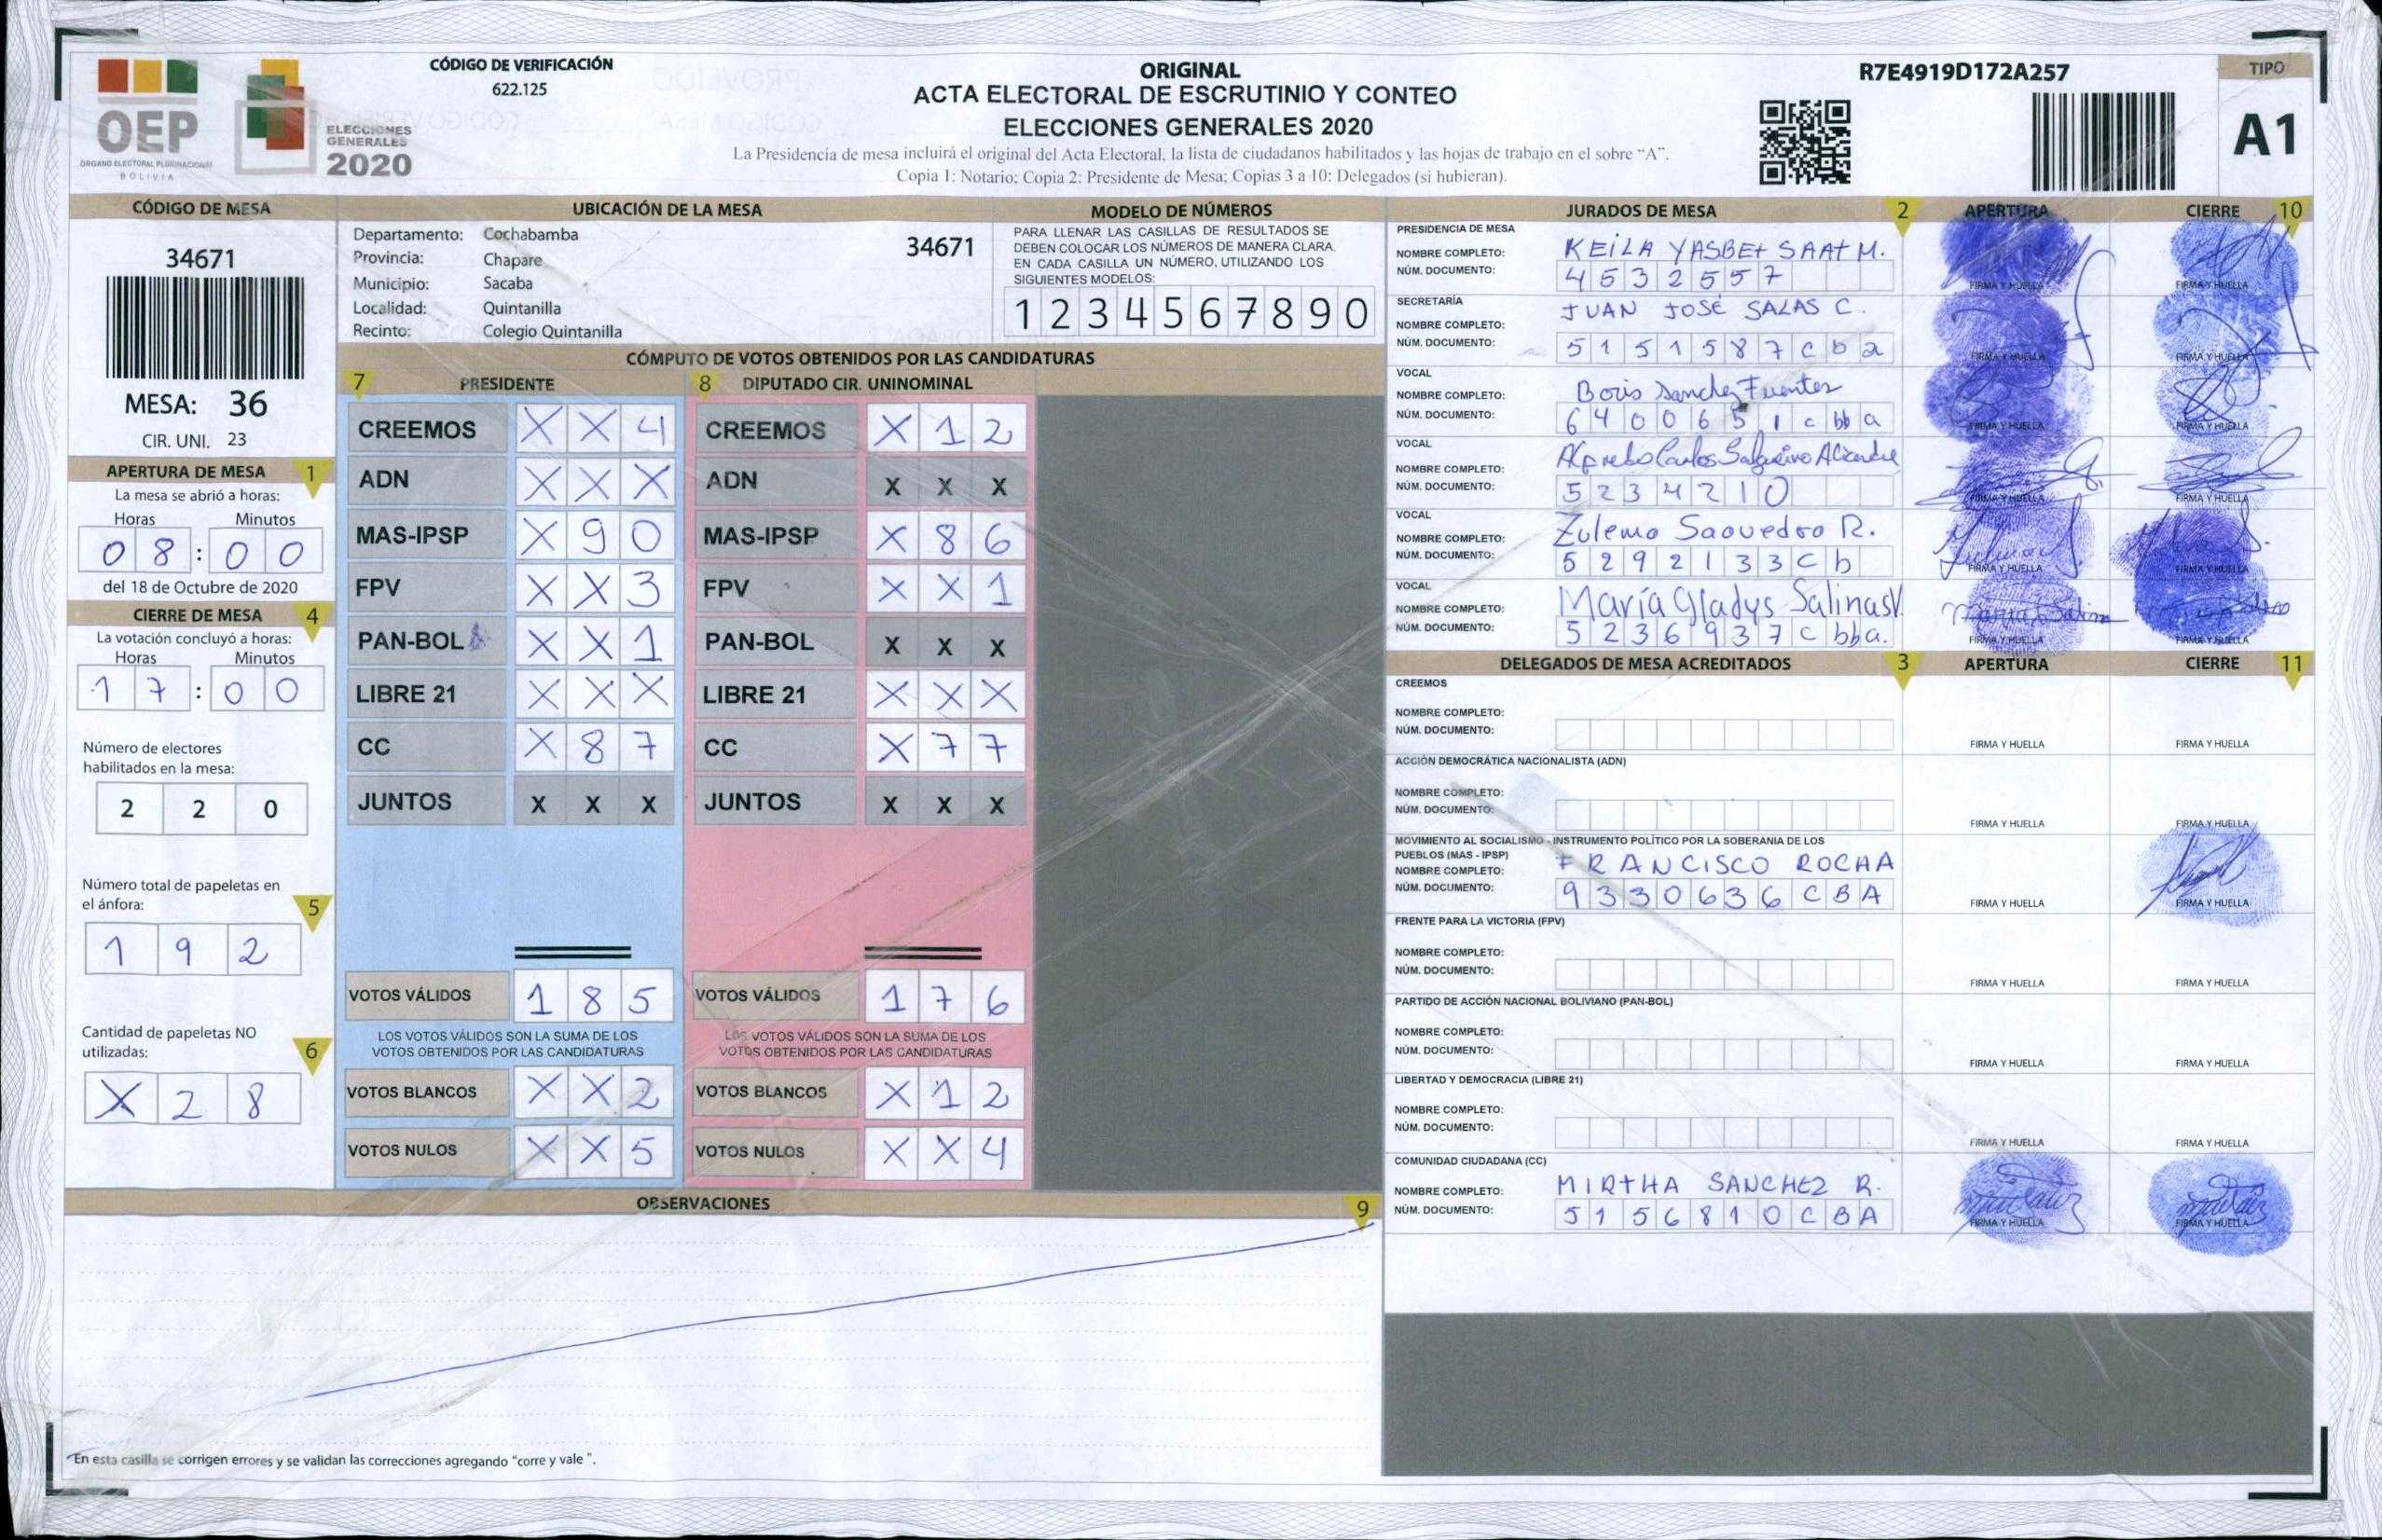 OEP
ÓRGANO ELECTORAL PLURINACIONAL
BOLIVIA
ELECCIONES
GENERALES
2020
CÓDIGO DE VERIFICACIÓN
622.125
ORIGINAL
ACTA ELECTORAL DE ESCRUTINIO Y CONTEO
ELECCIONES GENERALES 2020
La Presidencia de mesa incluirá el original del Acta Electoral, la lista de ciudadanos habilitados y las hojas de trabajo en el sobre “A”.
Copia 1: Notario; Copia 2: Presidente de Mesa; Copias 3 a 10: Delegados (si hubieran).
R7E4919D172A257
TIPO
A1
CÓDIGO DE MESA
34671
MESA: 36
CIR. UNI. 23
APERTURA DE MESA 1
La mesa se abrió a horas:
Horas Minutos
0 8 : 0 0
del 18 de Octubre de 2020
CIERRE DE MESA 4
La votación concluyó a horas:
Horas Minutos
1 7 : 0 0
Número de electores
habilitados en la mesa:
2 2 0
Número total de papeletas en
el ánfora: 5
1 9 2
Cantidad de papeletas NO
utilizadas: 6
X 2 8
UBICACIÓN DE LA MESA
Departamento: Cochabamba
Provincia: Chapare
Municipio: Sacaba
Localidad: Quintanilla
Recinto: Colegio Quintanilla
34671
MODELO DE NÚMEROS
PARA LLENAR LAS CASILLAS DE RESULTADOS SE
DEBEN COLOCAR LOS NÚMEROS DE MANERA CLARA.
EN CADA CASILLA UN NÚMERO, UTILIZANDO LOS
SIGUIENTES MODELOS:
1 2 3 4 5 6 7 8 9 0
CÓMPUTO DE VOTOS OBTENIDOS POR LAS CANDIDATURAS
7 PRESIDENTE 8 DIPUTADO CIR. UNINOMINAL
CREEMOS X X 4 CREEMOS X 1 2
ADN X X X ADN X X X
MAS-IPSP X 9 0 MAS-IPSP X 8 6
FPV X X 3 FPV X X 1
PAN-BOL X X 1 PAN-BOL X X X
LIBRE 21 X X X LIBRE 21 X X X
CC X 8 7 CC X 7 7
JUNTOS X X X JUNTOS X X X
VOTOS VÁLIDOS 1 8 5 VOTOS VÁLIDOS 1 7 6
LOS VOTOS VÁLIDOS SON LA SUMA DE LOS LOS VOTOS VÁLIDOS SON LA SUMA DE LOS
VOTOS OBTENIDOS POR LAS CANDIDATURAS VOTOS OBTENIDOS POR LAS CANDIDATURAS
VOTOS BLANCOS X X 2 VOTOS BLANCOS X 1 2
VOTOS NULOS X X 5 VOTOS NULOS X X 4
OBSERVACIONES 9
En esta casilla se corrigen errores y se validan las correcciones agregando “corre y vale ”.
JURADOS DE MESA 2 APERTURA CIERRE 10
PRESIDENCIA DE MESA
NOMBRE COMPLETO: KEILA YASBEt SAAt M.
NÚM. DOCUMENTO: 4 5 3 2 5 5 7
FIRMA Y HUELLA FIRMA Y HUELLA
SECRETARÍA
NOMBRE COMPLETO: JUAN JOSÉ SALAS C.
NÚM. DOCUMENTO: 5 1 5 1 5 8 7 c b a
FIRMA Y HUELLA FIRMA Y HUELLA
VOCAL
NOMBRE COMPLETO: Boris Sanchez Fuentes
NÚM. DOCUMENTO: 6 4 0 0 6 5 1 c bb a
FIRMA Y HUELLA FIRMA Y HUELLA
VOCAL
NOMBRE COMPLETO: Alfredo Carlos
NÚM. DOCUMENTO: 5 2 3 4 2 1 0
FIRMA Y HUELLA FIRMA Y HUELLA
VOCAL
NOMBRE COMPLETO: Zulema Saavedra R.
NÚM. DOCUMENTO: 5 2 9 2 1 3 3 c b
FIRMA Y HUELLA FIRMA Y HUELLA
VOCAL
NOMBRE COMPLETO: María Gladys Salinas V.
NÚM. DOCUMENTO: 5 2 3 6 9 3 7 c bb a.
FIRMA Y HUELLA FIRMA Y HUELLA
DELEGADOS DE MESA ACREDITADOS 3 APERTURA CIERRE 11
CREEMOS
NOMBRE COMPLETO:
NÚM. DOCUMENTO:
FIRMA Y HUELLA FIRMA Y HUELLA
ACCIÓN DEMOCRÁTICA NACIONALISTA (ADN)
NOMBRE COMPLETO:
NÚM. DOCUMENTO:
FIRMA Y HUELLA FIRMA Y HUELLA
MOVIMIENTO AL SOCIALISMO - INSTRUMENTO POLÍTICO POR LA SOBERANIA DE LOS
PUEBLOS (MAS - IPSP)
NOMBRE COMPLETO: FRANCISCO ROCHA
NÚM. DOCUMENTO: 9 3 3 0 6 3 6 C B A
FIRMA Y HUELLA FIRMA Y HUELLA
FRENTE PARA LA VICTORIA (FPV)
NOMBRE COMPLETO:
NÚM. DOCUMENTO:
FIRMA Y HUELLA FIRMA Y HUELLA
PARTIDO DE ACCIÓN NACIONAL BOLIVIANO (PAN-BOL)
NOMBRE COMPLETO:
NÚM. DOCUMENTO:
FIRMA Y HUELLA FIRMA Y HUELLA
LIBERTAD Y DEMOCRACIA (LIBRE 21)
NOMBRE COMPLETO:
NÚM. DOCUMENTO:
FIRMA Y HUELLA FIRMA Y HUELLA
COMUNIDAD CIUDADANA (CC)
NOMBRE COMPLETO: MIRtHA SANCHEZ R.
NÚM. DOCUMENTO: 5 1 5 6 8 1 0 C B A
FIRMA Y HUELLA FIRMA Y HUELLA